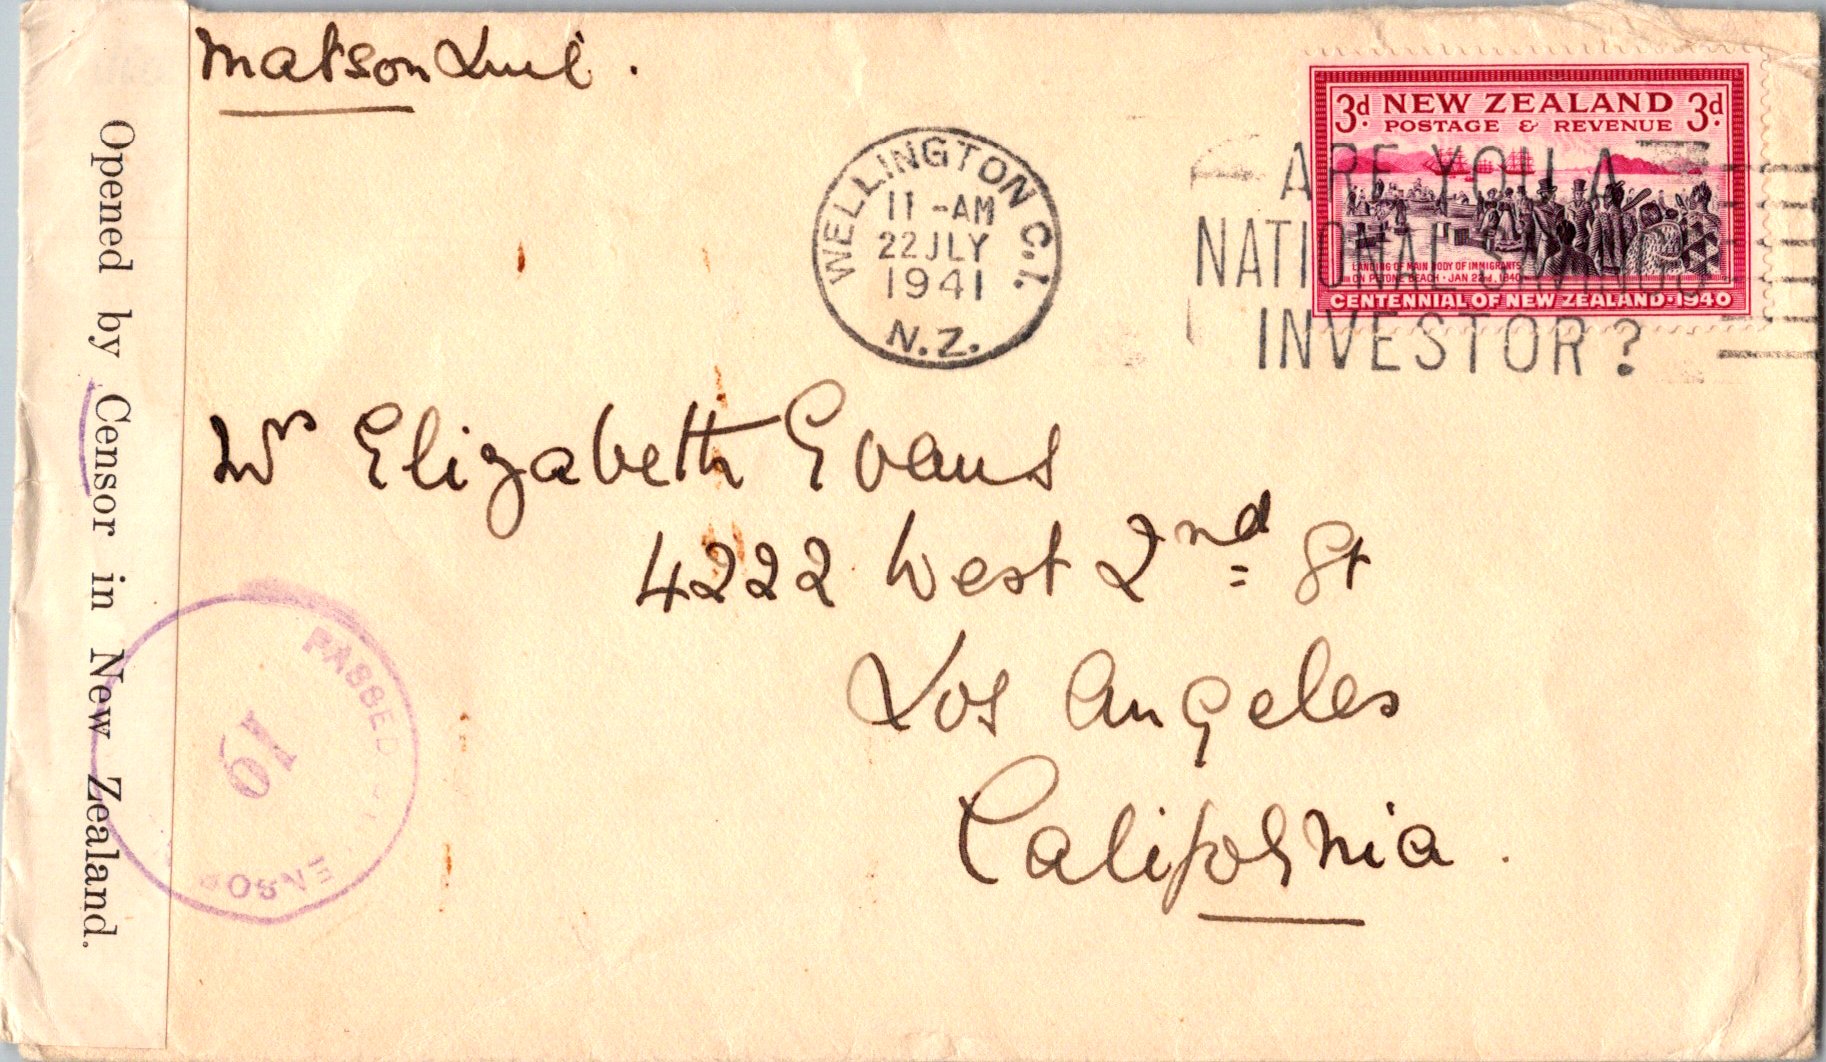 Matson Line.
Opened by Censor in New Zealand.
WELLINGTON C.1.
11 -AM
22 JLY
1941
N.Z.
3d. NEW ZEALAND 3d.
POSTAGE & REVENUE
LANDING OF MAIN BODY OF IMMIGRANTS
ON PETONE BEACH · JAN 22nd, 1840
CENTENNIAL OF NEW ZEALAND·1940
ARE YOU A
NATIONAL SAVINGS
INVESTOR?
Mrs Elizabeth Evans
4222 West 2nd St
Los Angeles
California.
PASSED